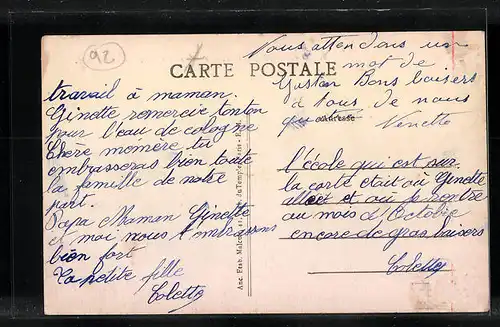 92
CARTE POSTALE
Vous attendons un
mot de
Gaston Bons baisers
à tous de nous
Adresse
travail à maman.
Ginette remercie tonton
pour l'eau de cologne
Chère momère tu
embrasseras bien toute
la famille de notre
part.
Papa Maman Ginette
et moi nous t'embrassons
bien fort
Ta petite fille
Colette
Anc. Etab. Malcuit
l'école qui est sur
la carte était où Ginette
allait et où je rentre
au mois d'Octobre
encore de gros baisers
Colette